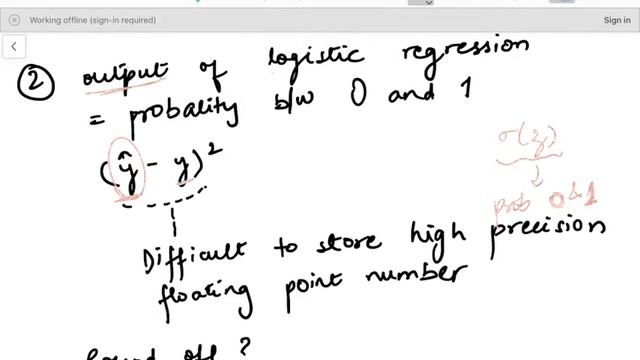 Working offline (sign-in required)
Sign in
② output of logistic regression
= probality b/w 0 and 1
(ŷ - y)²
σ(z)
prob 0 & 1
Difficult to store high precision
floating point number
Round off ?